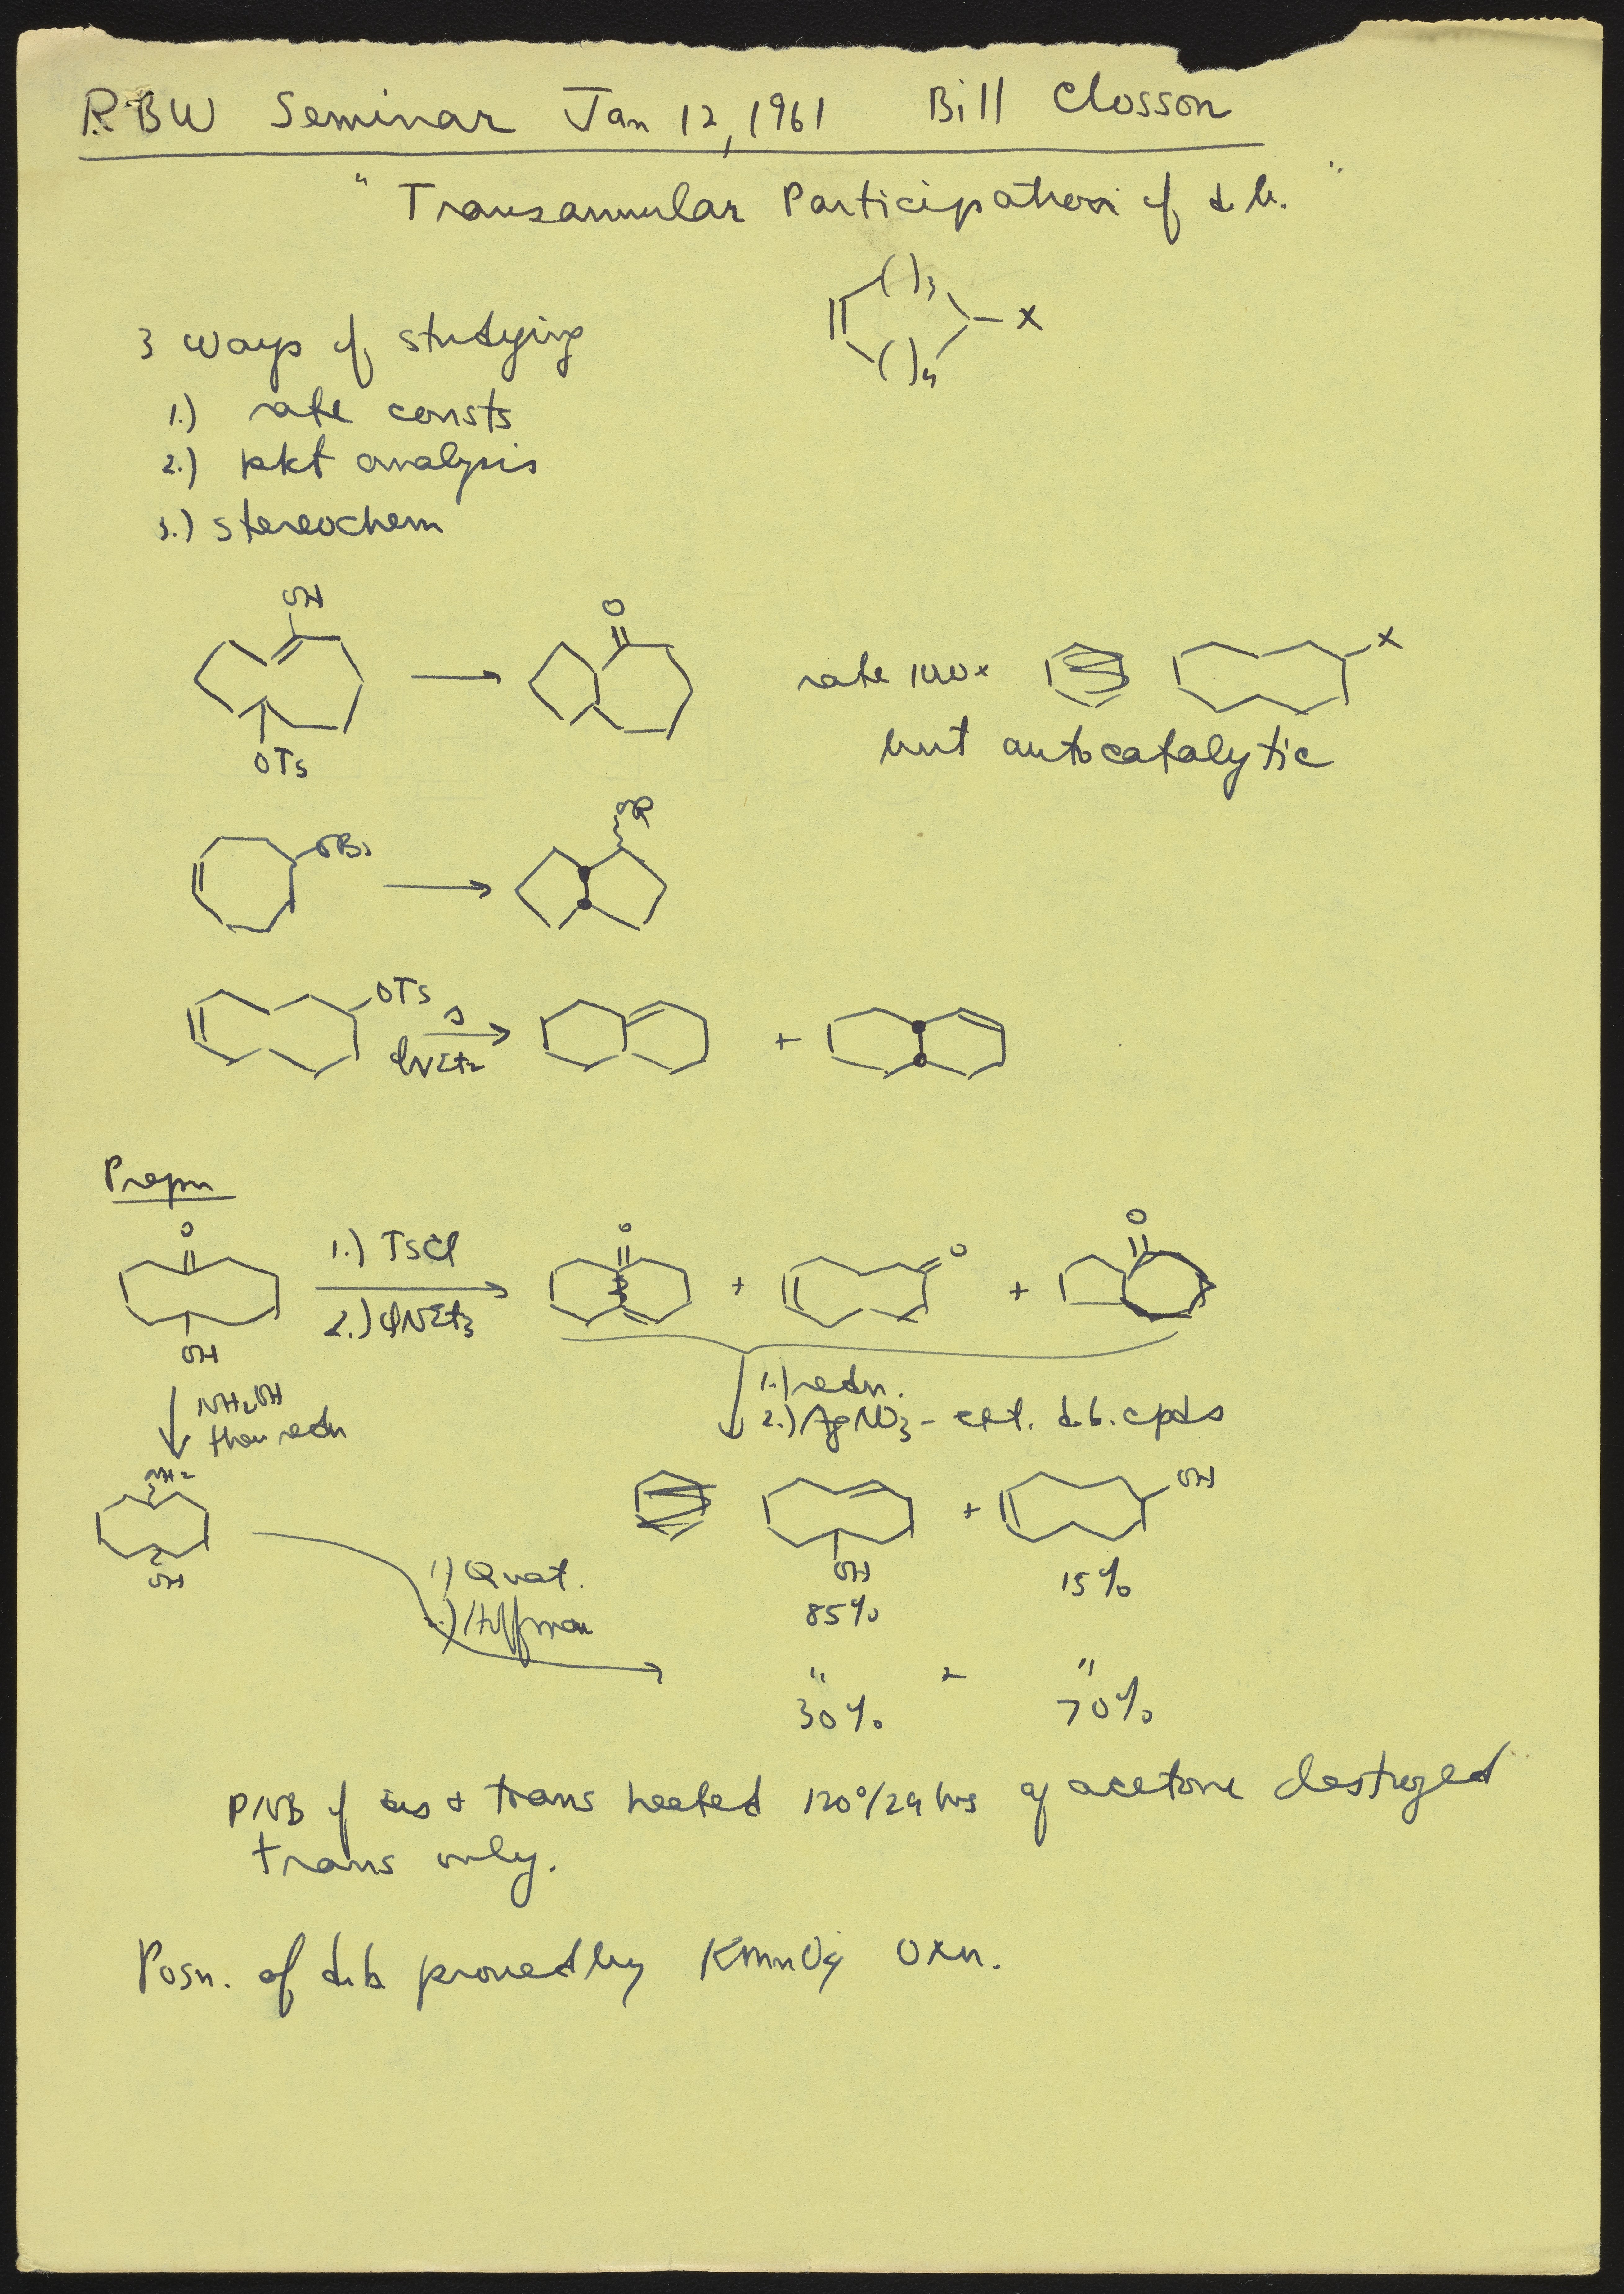 RBW Seminar Jan 12, 1961 Bill Closson
"Transannular Participation of d.b."
( )3
X
( )n
3 ways of studying
1.) rate consts
2.) pkt analysis
3.) stereochem
OH
O
OTs
rate 100x
X
but autocatalytic
OBs
OR
OTs
Δ
φNEt2
+
Prepn
O
OH
1.) TsCl
2.) φNEt3
O
+
O
+
O
NH2OH
then redn
1.) redn.
2.) AgNO3 - ext. d.b. cpds
NH2
OH
OH
85%
+
OH
15%
1.) Quat.
2.) Hoffman
" "
30% 70%
PNB of cis & trans heated 120°/24 hrs aq acetone destroyed
trans only.
Posn. of d.b. proved by KMnO4 Oxn.